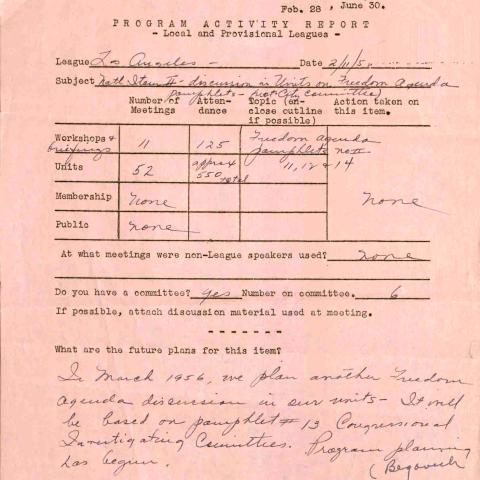 Feb. 28, June 30.
PROGRAM ACTIVITY REPORT
- Local and Provisional Leagues -
League Los Angeles - Date 2/11/5
Subject Natl Item II - discussion in Units on Freedom Agenda
pamphlets - (not City Committee)
Number of Meetings Attendance Topic (enclose outline if possible) Action taken on this item.
Workshops & briefings 11 125 Freedom agenda pamphlets no
Units 52 approx 550 total 11, 12 & 14
Membership none none
Public none
At what meetings were non-League speakers used? none
Do you have a committee? yes Number on committee. 6
If possible, attach discussion material used at meeting.
- - - - - - -
What are the future plans for this item?
In March 1956, we plan another Freedom
Agenda discussion in our units - It will
be based on pamphlet # 13 Congressional
Investigating Committees. Program planning
has begun.